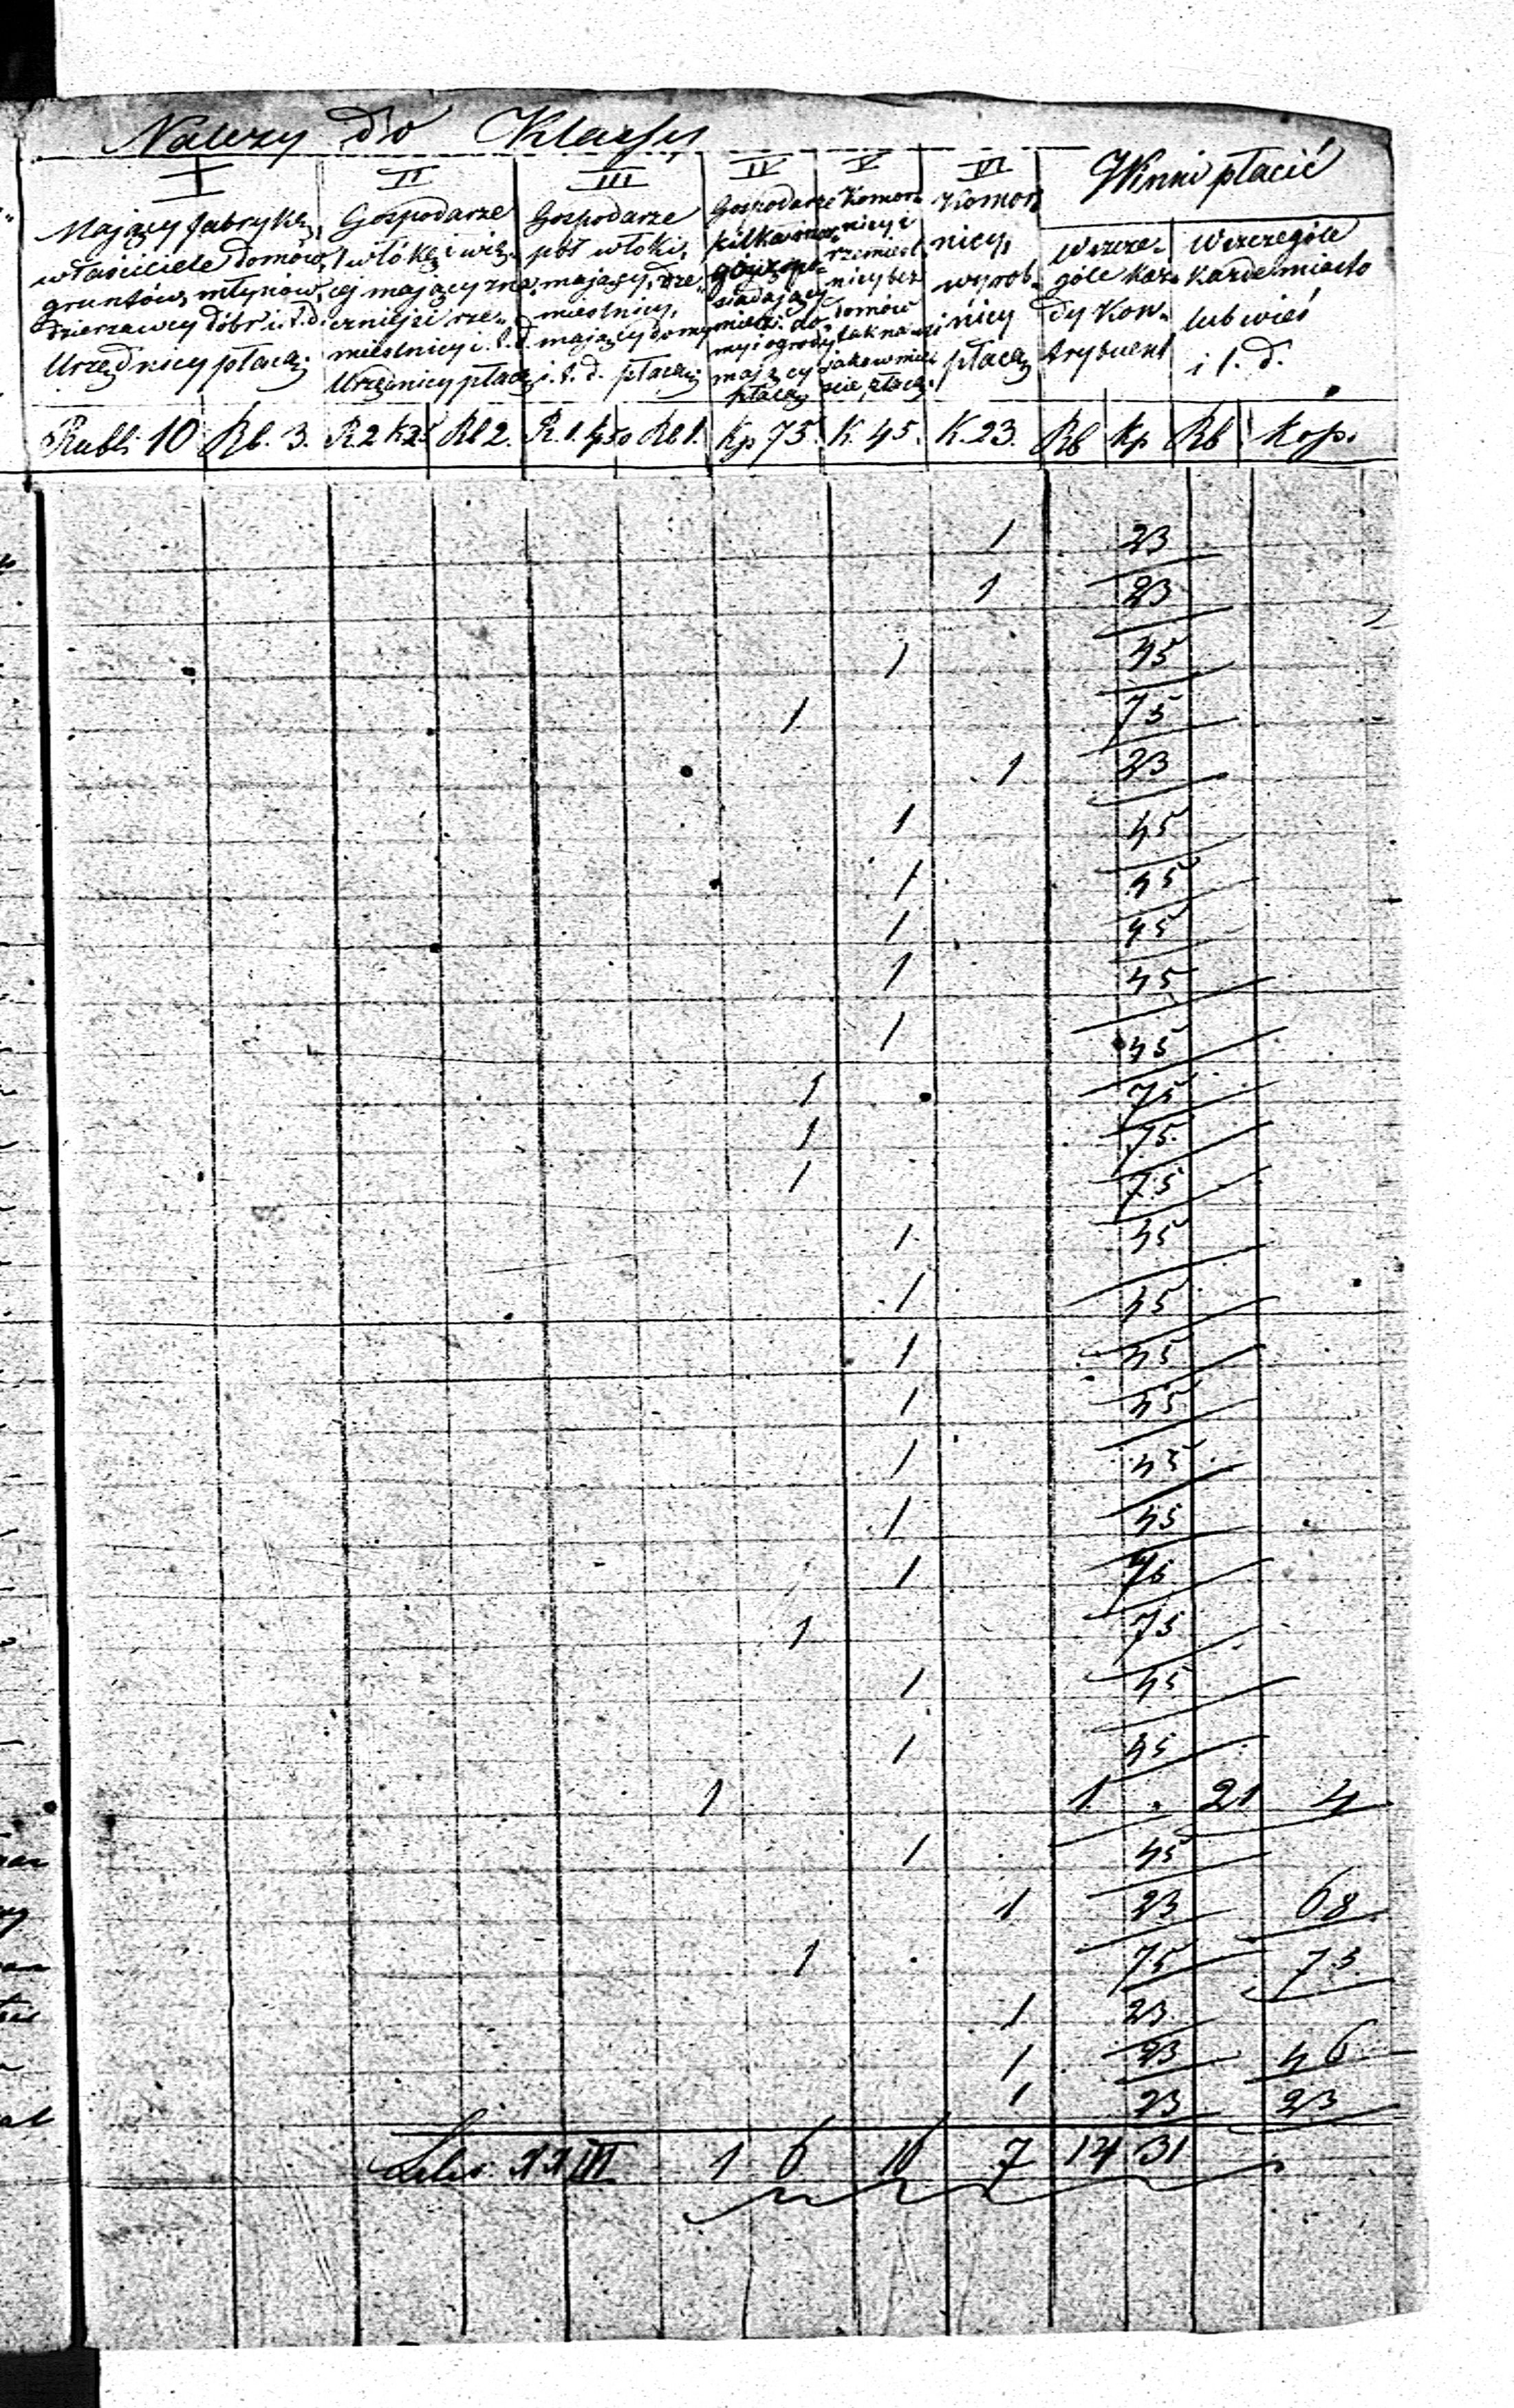 Należy do Klassy
I II III IV V VI Winni płacić
Mający fabrykę,
właściciele domów,
gruntów, młynów,
dzierzawcy dóbr i t. d.
Urzędnicy płacą:
Gospodarze
1 włókę i wię-
cej mający zna-
czniejsi rze-
mieslnicy i. t. d.
Urzędnicy płacą
Gospodarze
pół włoki,
mający, rze-
mieslnicy,
mający domy
i. t. d. płacą:
Gospodarze
kilka mor-
gów po-
siadający
do-
my i ogrody
mający
płacą
Komor-
nicy i
rzemieśl
nicy bez
domów
tak na wsi
jako w mie-
ście, płacą.
Komor
nicy,
wyrob-
nicy
płacą
w szcze-
góle każ-
dy Kon-
trybuent
w szczególe
każde miasto
lub wieś
i t. d.
Rubli 10 Rb. 3. R 2 k 25 Rb 2. R. 1. k 50 Rb 1. Kp 75. K. 45. K. 23. Rb Kp Rb Kop.
1 23
1 23
1 45
1 75
1 23
1 45
1 45
1 45
1 45
1 45
1 75
1 75
1 75
1 45
1 45
1 45
1 45
1 45
1 45
1
1 75
1 45
1 45
1 1 . 21 4
1 45
1 23 68
1 75 75
1 23
1 23 46
1 23 23
1 6 16 7 14 31